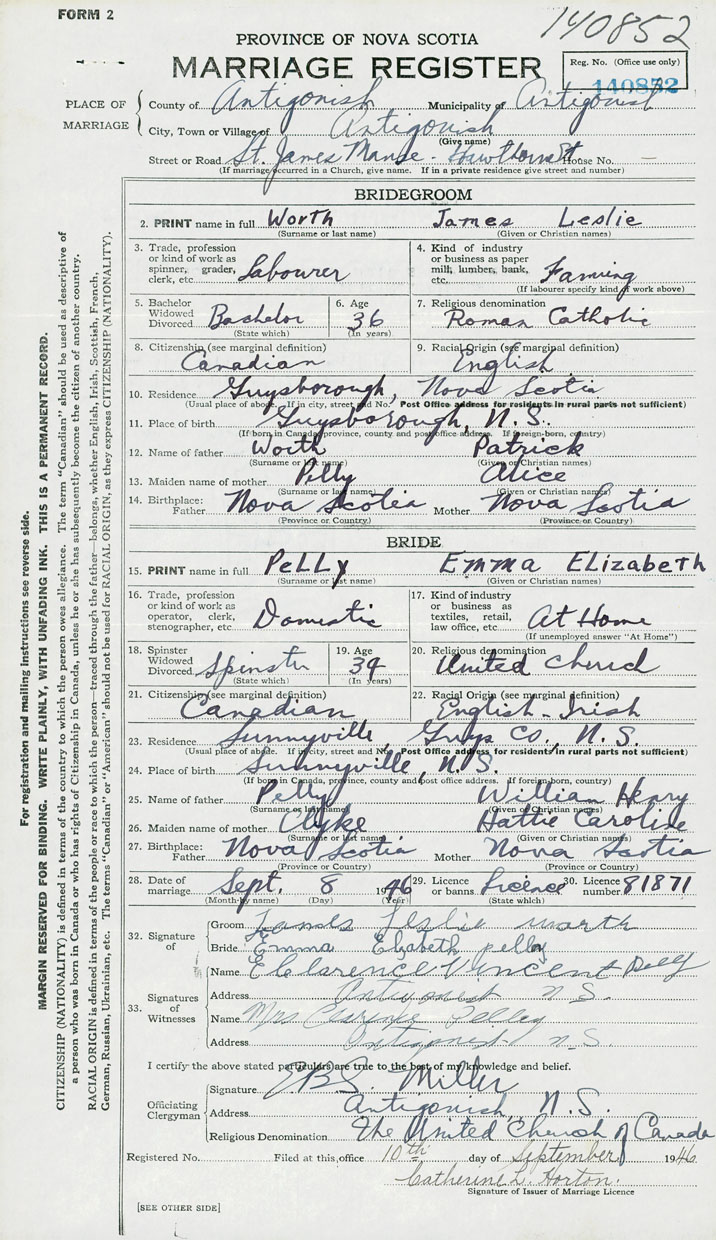 FORM 2
140852
PROVINCE OF NOVA SCOTIA
MARRIAGE REGISTER
Reg. No. (Office use only)
140852
PLACE OF MARRIAGE
County of Antigonish Municipality of Antigonish
City, Town or Village of Antigonish
(Give name)
Street or Road St. James Manse - Hawthorne St House No. —
(If marriage occurred in a Church, give name. If in a private residence give street and number)
BRIDEGROOM
2. PRINT name in full Worth James Leslie
(Surname or last name) (Given or Christian names)
3. Trade, profession or kind of work as spinner, grader, clerk, etc. Labourer
4. Kind of industry or business as paper mill, lumber, bank, etc. Farming
(If labourer specify kind of work above)
5. Bachelor Widowed Divorced Bachelor
(State which)
6. Age 36
(In years)
7. Religious denomination Roman Catholic
8. Citizenship (see marginal definition) Canadian
9. Racial Origin (see marginal definition) English
10. Residence Guysborough, Nova Scotia
(Usual place of abode. If in city, street and No. Post Office address for residents in rural parts not sufficient)
11. Place of birth Guysborough, N.S.
(If born in Canada, province, county and post office address. If foreign born, country)
12. Name of father Worth Patrick
(Surname or last name) (Given or Christian names)
13. Maiden name of mother Pelly Alice
(Surname or last name) (Given or Christian names)
14. Birthplace: Father Nova Scotia Mother Nova Scotia
(Province or Country) (Province or Country)
BRIDE
15. PRINT name in full PeLLy Emma ELizabeth
(Surname or last name) (Given or Christian names)
16. Trade, profession or kind of work as operator, clerk, stenographer, etc. Domestic
17. Kind of industry or business as textiles, retail, law office, etc. At Home
(If unemployed answer "At Home")
18. Spinster Widowed Divorced Spinster
(State which)
19. Age 39
(In years)
20. Religious denomination United Church
21. Citizenship (see marginal definition) Canadian
22. Racial Origin (see marginal definition) English-Irish
23. Residence Sunnyville, Guys Co., N.S.
(Usual place of abode. If in city, street and No. Post Office address for residents in rural parts not sufficient)
24. Place of birth Sunnyville, N.S.
(If born in Canada, province, county and post office address. If foreign born, country)
25. Name of father Pelly William Henry
(Surname or last name) (Given or Christian names)
26. Maiden name of mother Clyke Hattie Caroline
(Surname or last name) (Given or Christian names)
27. Birthplace: Father Nova Scotia Mother Nova Scotia
(Province or Country) (Province or Country)
28. Date of marriage Sept. 8 1946
(Month by name) (Day) (Year)
29. Licence or banns. Licence
(State which)
30. Licence number 81871
32. Signature of
Groom James Leslie worth
Bride Emma Elzabeth pelley
33. Signatures of Witnesses
Name Clarence Vincent Pelly
Address Antigonish N.S.
Name Mrs Clarence Pelley
Address Antigonish N.S.
I certify the above stated particulars are true to the best of my knowledge and belief.
Officiating Clergyman
Signature Miller
Address Antigonish, N.S.
Religious Denomination The United Church of Canada
Registered No. Filed at this office 10th day of September 1946
Catherine L. Horton.
Signature of Issuer of Marriage Licence
[SEE OTHER SIDE]
For registration and mailing instructions see reverse side.
MARGIN RESERVED FOR BINDING. WRITE PLAINLY, WITH UNFADING INK. THIS IS A PERMANENT RECORD.
CITIZENSHIP (NATIONALITY) is defined in terms of the country to which the person owes allegiance. The term "Canadian" should be used as descriptive of
a person who was born in Canada or who has rights of Citizenship in Canada, unless he or she has subsequently become the citizen of another country.
RACIAL ORIGIN is defined in terms of the people or race to which the person—traced through the father—belongs, whether English, Irish, Scottish, French,
German, Russian, Ukrainian, etc. The terms "Canadian" or "American" should not be used for RACIAL ORIGIN, as they express CITIZENSHIP (NATIONALITY).